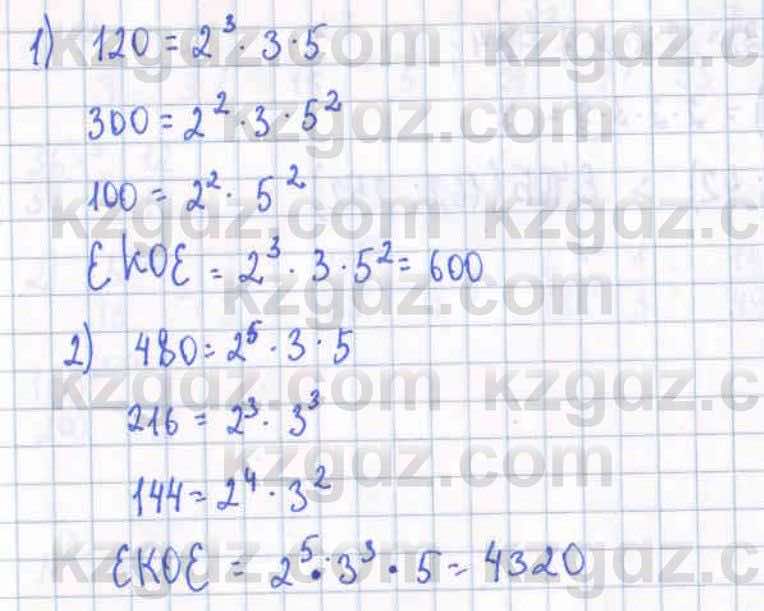 1) 120 = 2³ · 3 · 5
300 = 2² · 3 · 5²
100 = 2² · 5²
ЕКОЕ = 2³ · 3 · 5² = 600
2) 480 = 2⁵ · 3 · 5
216 = 2³ · 3³
144 = 2⁴ · 3²
ЕКОЕ = 2⁵ · 3³ · 5 = 4320
kzgdz.com kzgdz.c
kzgdz.com
kzgdz.com kzgdz.c
kzgdz.com
kzgdz.com kzgdz.c
kzgdz.com
kzgdz.com kzgdz.c